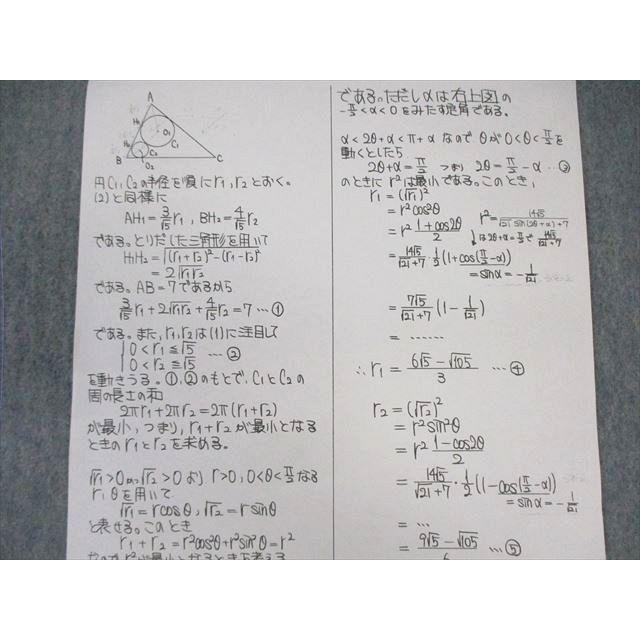 A
H₁
O₁
C₁
H₂
C₂
B
O₂
C
円C₁, C₂の半径を順にr₁, r₂とおく。
(2)と同様に
AH₁ = 3/√5 r₁, BH₂ = 4/√5 r₂
である。とりだした三角形を用いて
H₁H₂ = √((r₁+r₂)²-(r₁-r₂)²)
= 2√r₁r₂
である。AB=7であるから
3/√5 r₁+2√r₁r₂+4/√5 r₂=7 …①
である。また、r₁, r₂は(1)に注目して
0<r₁≦√5
0<r₂≦√5 …②
を動きうる。①,②のもとで、C₁とC₂の
周の長さの和
2πr₁+2πr₂=2π(r₁+r₂)
が最小、つまり、r₁+r₂が最小となる
ときのr₁とr₂を求める。
√r₁>0かつ√r₂>0より r>0, 0<θ<π/2なる
r, θを用いて
√r₁=rcosθ, √r₂=rsinθ
と表せる。このとき
r₁+r₂=r²cos²θ+r²sin²θ=r²
なのでr²が最小となるときを考える
である。ただしαは右上図の
-π/2<α<0をみたす定角である。
α<2θ+α<π+α なのでθが0<θ<π/2を
動くとしたら
2θ+α=π/2 つまり 2θ=π/2-α …③
のときにr²は最小である。このとき、
r₁ = (√r₁)²
= r²cos²θ
= r² (1+cos2θ)/2
r²= 14√5/(√21 sin(2θ+α)+7)
は2θ+α=π/2で 14√5/(√21+7)
= 14√5/(√21+7)・1/2(1+cos(π/2-α))
=sinα=-1/√21
= 7√5/(√21+7) (1-1/√21)
= ……
∴ r₁ = (6√5-√105)/3 …④
r₂ = (√r₂)²
= r²sin²θ
= r² (1-cos2θ)/2
= 14√5/(√21+7)・1/2・(1-cos(π/2-α))
=sinα=-1/√21
= …
= (9√5-√105)/6 …⑤